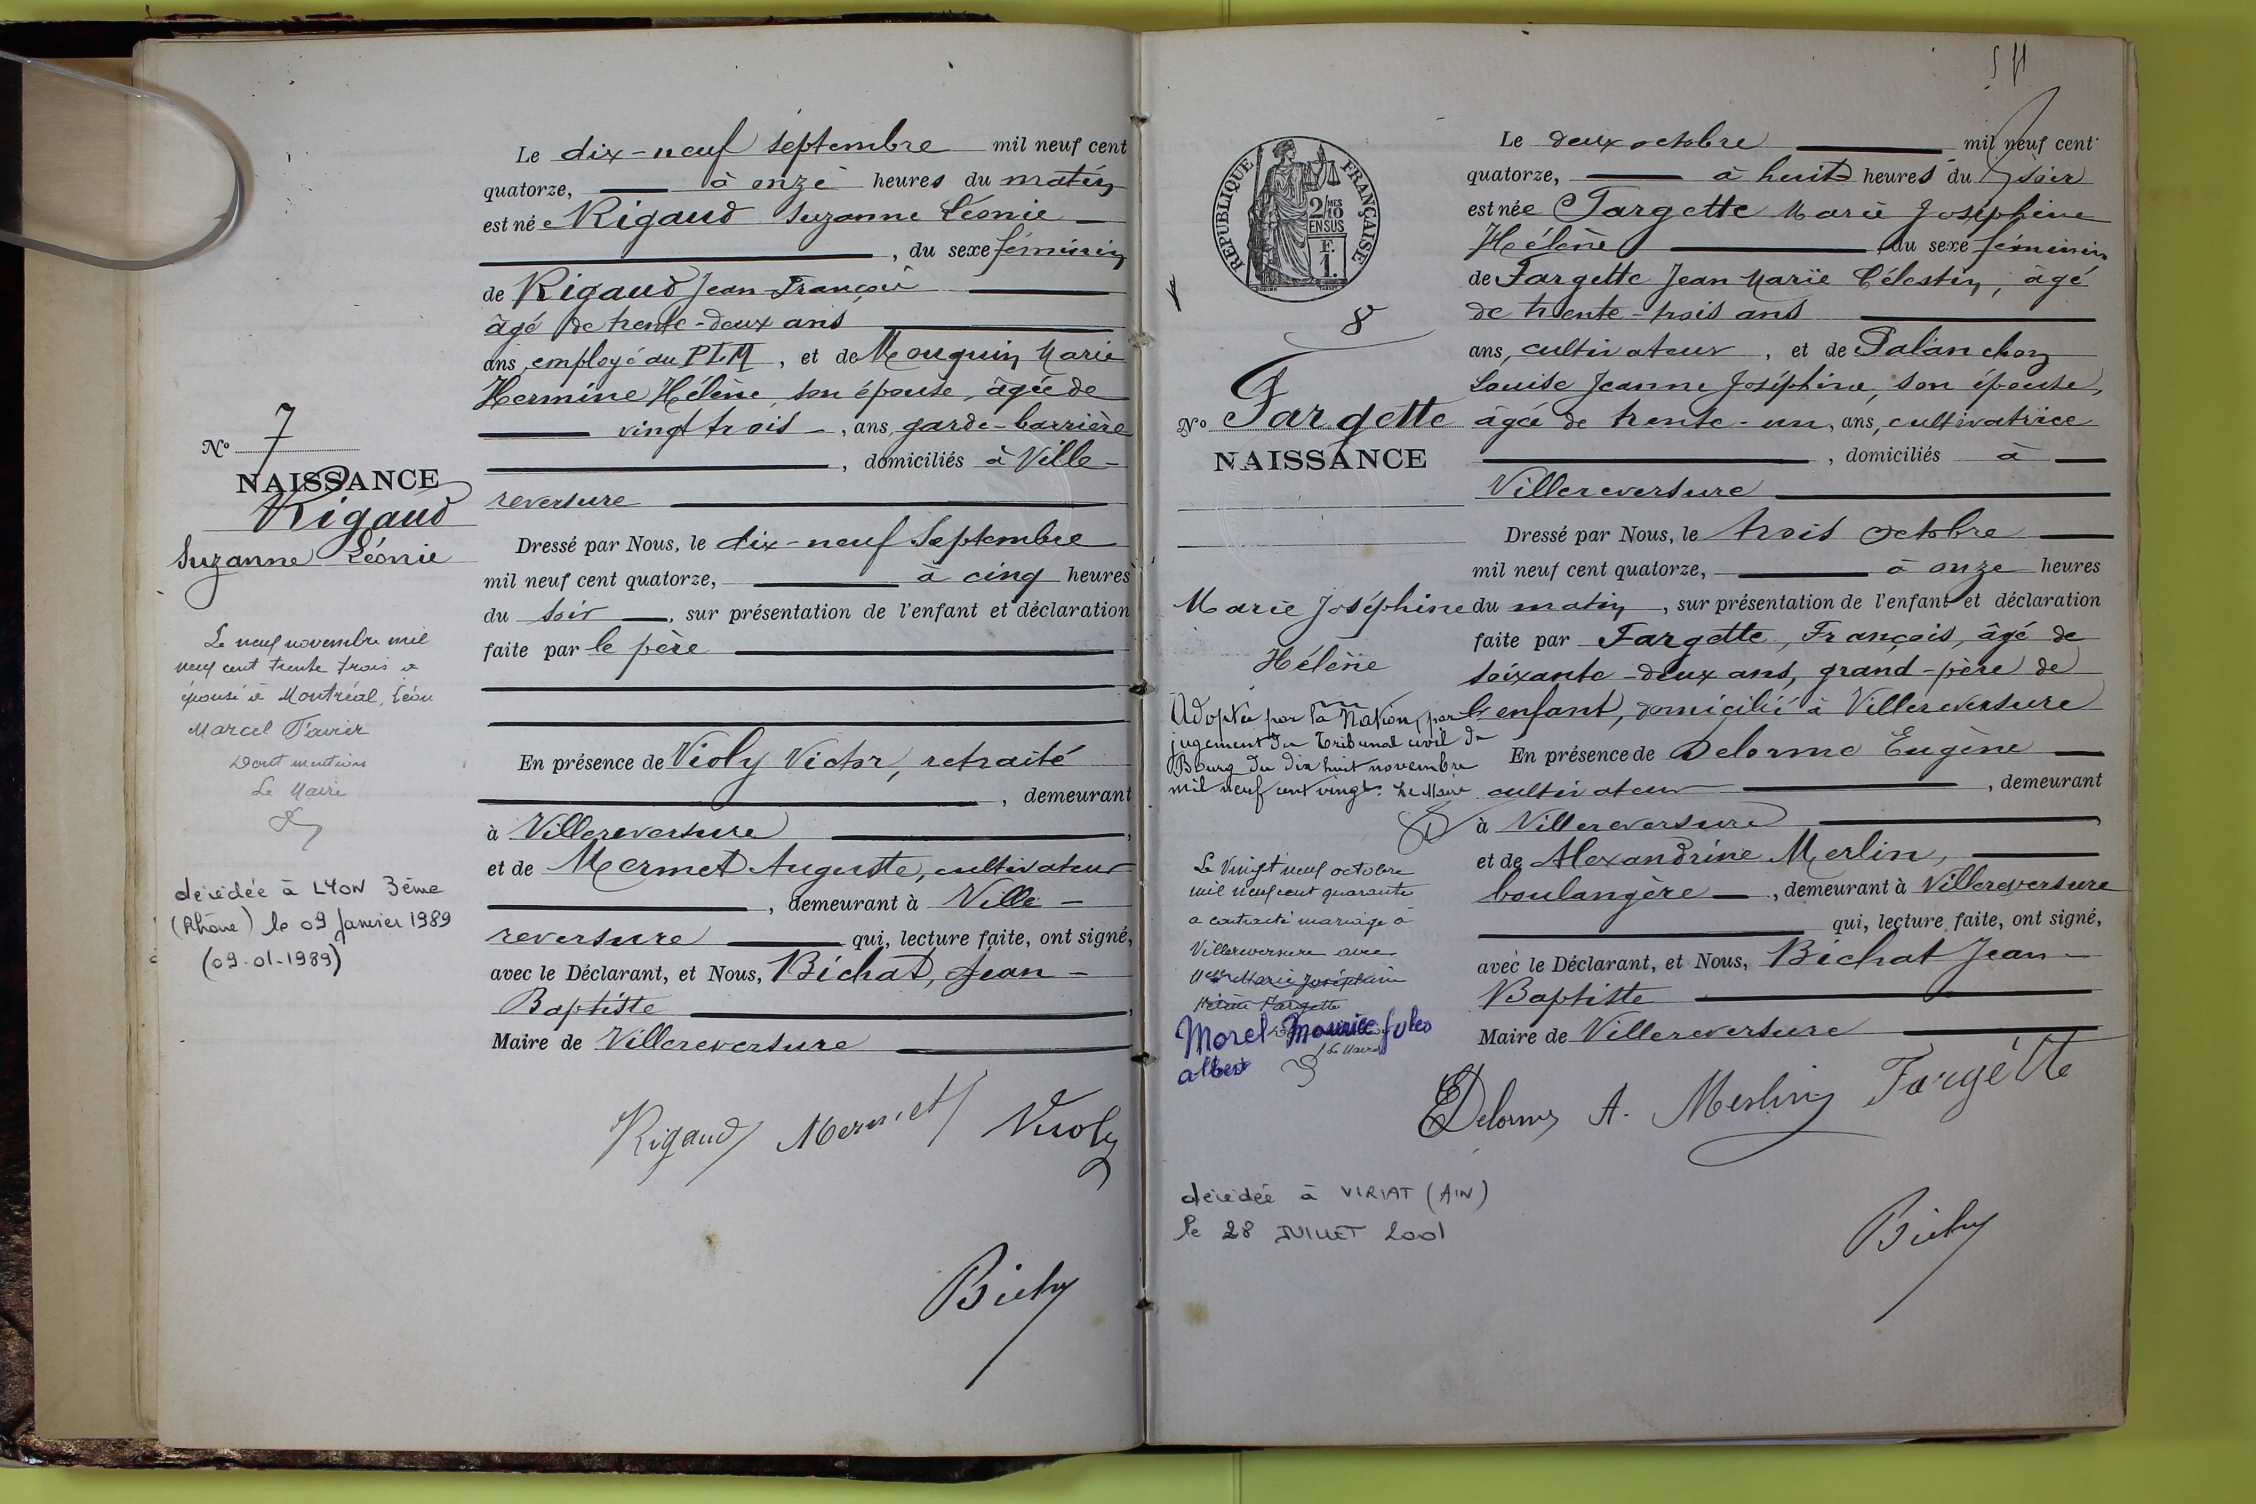 Le dix-neuf septembre mil neuf cent
quatorze, à onze heures du matin
est née Rigaud Suzanne Léonie
, du sexe féminin
de Rigaud Jean François
âgé de trente-deux ans
ans, employé au PLM, et de Mouguin Marie
Hermine Hélène, son épouse, âgée de
vingt trois, ans, garde-barrière
, domiciliés à Ville-
reversure
Dressé par Nous, le dix-neuf Septembre
mil neuf cent quatorze, à cinq heures
du soir, sur présentation de l'enfant et déclaration
faite par le père
En présence de Violy Victor, retraité
, demeurant
à Villereversure,
et de Mermet Auguste, cultivateur
, demeurant à Ville-
reversure qui, lecture faite, ont signé,
avec le Déclarant, et Nous, Bichat, Jean-
Baptiste,
Maire de Villereversure
Rigaud Mermet Violy
Nº 7
NAISSANCE
Rigaud
Suzanne Léonie
Le neuf novembre mil
neuf cent trente trois a
épousé à Montréal, Léon
Marcel
Dont mention
Le Maire
décédée à LYON 3ème
(Rhône) le 09 Janvier 1989
(09-01-1989)
RÉPUBLIQUE FRANÇAISE
2/10 MES
EN SUS
F.
1.
8
Nº Fargette
NAISSANCE
Marie Joséphine
Hélène
Adoptée par la Nation, par
jugement du Tribunal civil de
Bourg du dix huit novembre
mil neuf cent vingt. Le Maire
Le Vingt neuf octobre
mil neuf cent quarante
a contracté mariage à
Villereversure avec
Marie Joséphine
Hélène Fargette
Morel Maurice Jules
Le Maire
Albert
décédée à VIRIAT (AIN)
le 28 JUILLET 2001
Le deux octobre mil neuf cent
quatorze, à huit heures du soir
est née Fargette Marie Joséphine
Hélène, du sexe féminin
de Fargette Jean Marie Célestin, âgé
de trente-trois ans
ans, cultivateur, et de Palanchon
Louise Jeanne Joséphine, son épouse,
âgée de trente-un, ans, cultivatrice
, domiciliés à
Villereversure
Dressé par Nous, le trois octobre
mil neuf cent quatorze, à onze heures
du matin, sur présentation de l'enfant et déclaration
faite par Fargette, François, âgé de
soixante-deux ans, grand-père de
l'enfant, domicilié à Villereversure
En présence de Delorme Eugène
cultivateur, demeurant
à Villereversure,
et de Alexandrine Merlin,
boulangère, demeurant à Villereversure
qui, lecture faite, ont signé,
avec le Déclarant, et Nous, Bichat Jean-
Baptiste
Maire de Villereversure
EDelorme A. Merlin Fargette